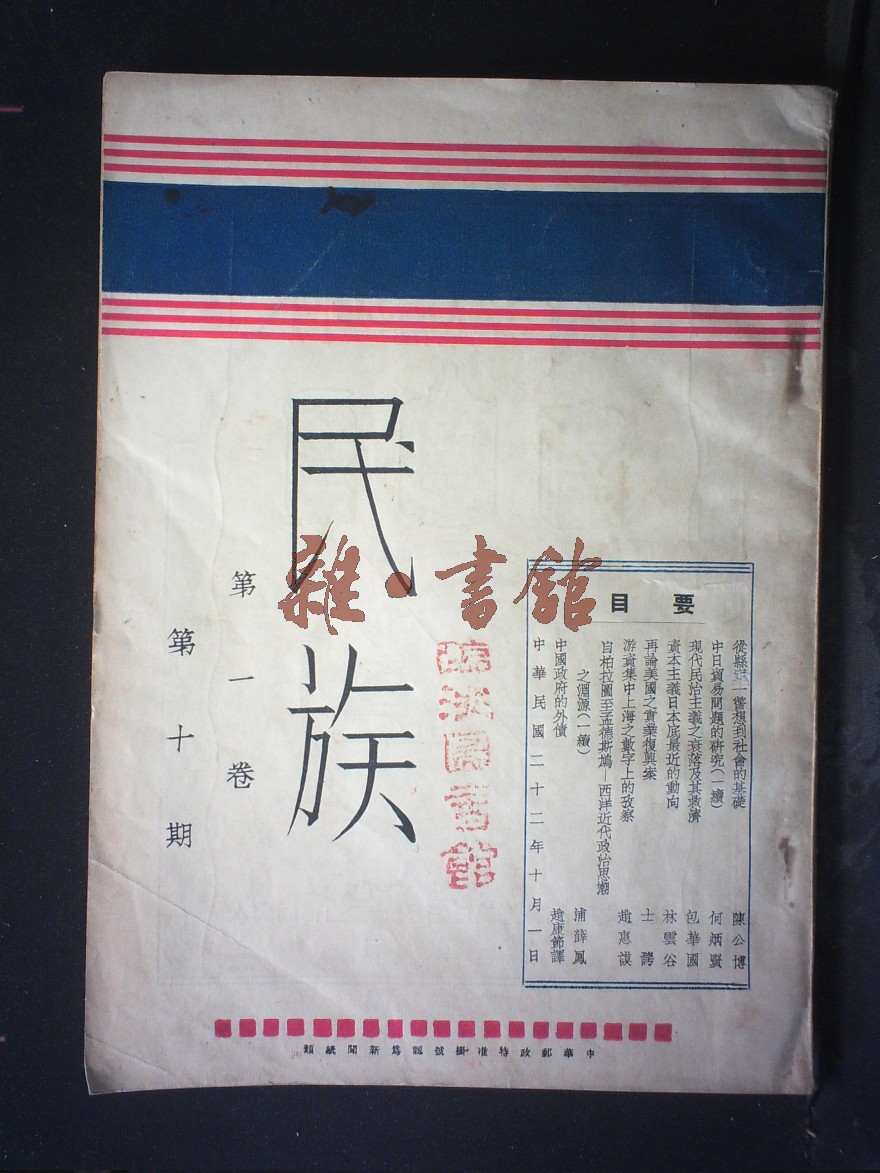 民族
第一卷
第十期
雜·書館
要目
從縣政一瞥想到社會的基礎 陳公博
中日貿易問題的研究(一續) 何炳賢
現代民治主義之衰落及其救濟 包華國
資本主義日本底最近的動向 林雲谷
再論美國之實業復興案 士諤
游資集中上海之數字上的攷察 趙惠謨
自柏拉圖至孟德斯鳩—西洋近代政治思潮
之淵源(一續) 浦薛鳳
中國政府的外債 趙康節譯
中華民國二十二年十月一日
圖書館
中華郵政特准掛號認爲新聞紙類